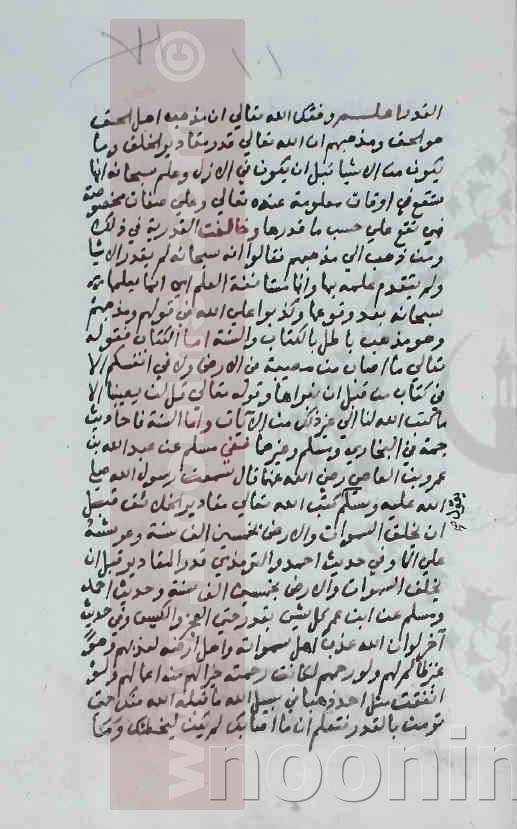 ١٠١
القدر اعلم وفقك الله تعالى ان مذهب اهل الحق
هو الحق ومذهبهم ان الله تعالى قدر مقادير الخلق وما
يكون من الاشيا قبل ان يكون في الازل وعلم سبحانه انها
ستقع في اوقات معلومة عنده تعالى وعلي صفات مخصوصة
فهي تقع علي حسب ما قدرها وخالفت القدرية في ذلك
ومن ذهب الي مذهبهم فقالوا انه سبحانه لم يقدر الاشيا
ولم يتقدم علمه بها وانها مستانفة العلم اي انما يعلمها
سبحانه بعد وقوعها وكذبوا علي الله في قولهم ومذهبهم
وهو مذهب باطل بالكتاب والسنة اما الكتاب فقوله
تعالي ما اصاب من مصيبة في الارض ولا في انفسكم الا
في كتاب من قبل ان نبراها وقوله تعالي قل لن يصيبنا الا
ما كتب الله لنا الي غير ذلك من الايات واما السنة فاحاديث
جمة في البخاري ومسلم وغيرهما ففي مسلم عن عبد الله بن
عمرو بن العاصي رضي الله عنهما قال سمعت رسول الله صلي
الله عليه وسلم كتب الله تعالي مقادير الخلائق قبل
يقول
ان يخلق السموات والارض بخمسين الف سنة وعرشه
علي الما وفي حديث احمد والترمذي قدر المقادير قبل ان
يخلق السموات والارض بخمسين الف سنة وحديث احمد
ومسلم عن ابن عمر كل شي بقدر حتي العجز والكيس وفي حديث
آخر لو ان الله عذب اهل سمواته واهل ارضه لعذبهم وهو
غير ظالم لهم ولو رحمهم لكانت رحمته خيرا لهم من اعمالهم ولو
انفقت مثل احد ذهبا في سبيل الله ما قبله الله منك حتي
تومن بالقدر فتعلم ان ما اصابك لم يكن ليخطئك وما
noonin